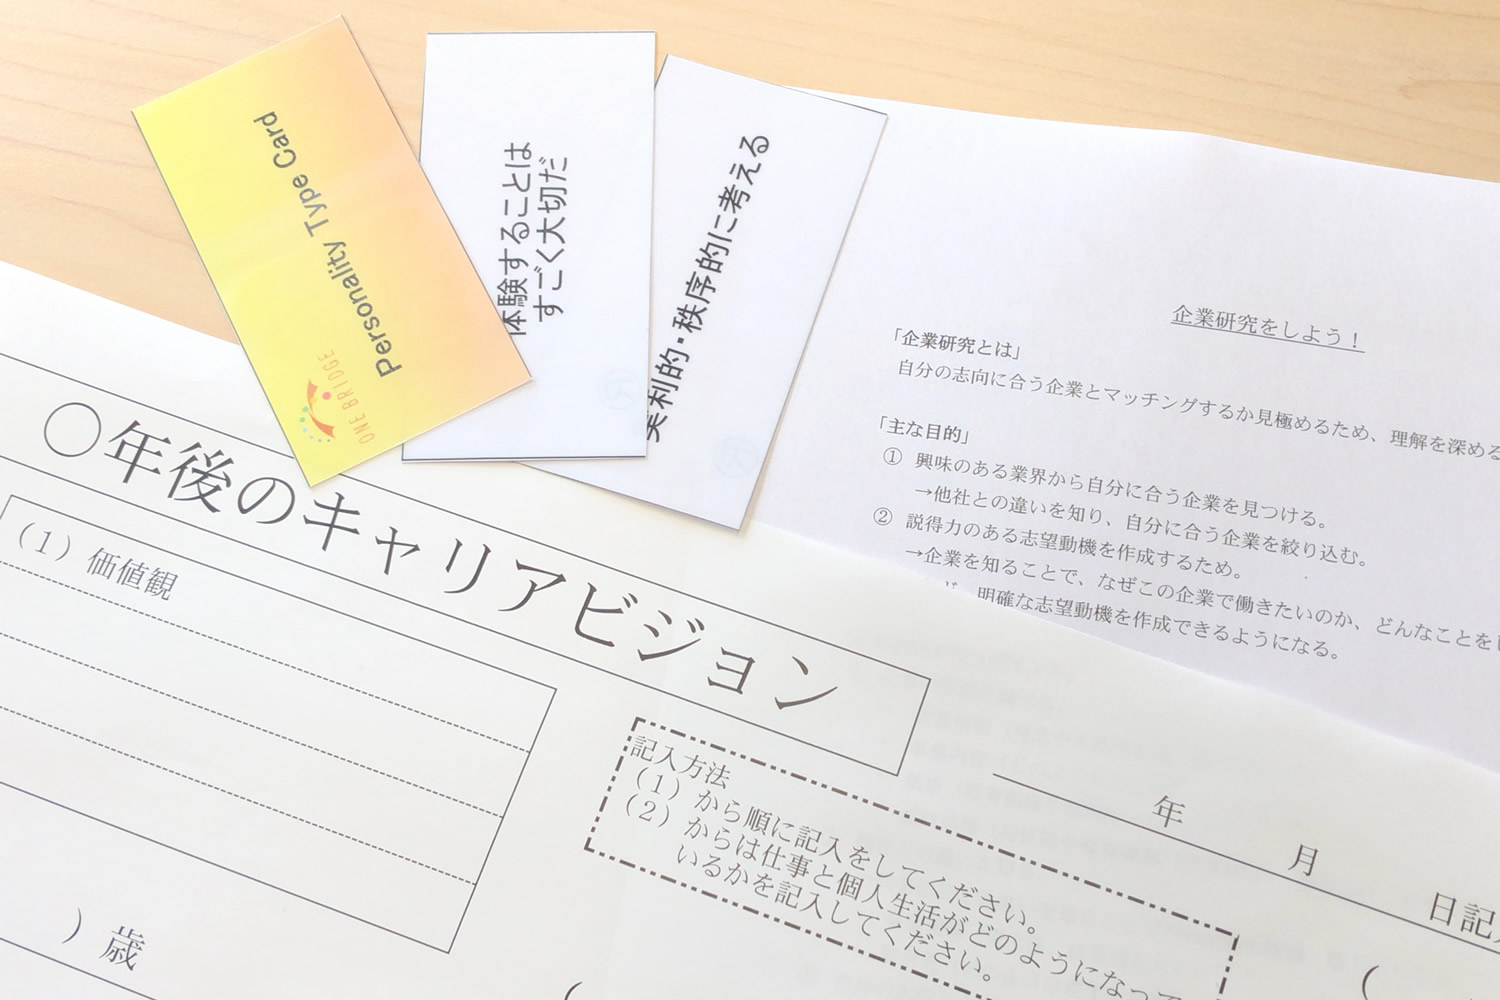 Personality Type Card
ONE BRIDGE
体験することは
すごく大切だ
実利的・秩序的に考える
企業研究をしよう！
「企業研究とは」
自分の志向に合う企業とマッチングするか見極めるため、理解を深める
「主な目的」
① 興味のある業界から自分に合う企業を見つける。
→他社との違いを知り、自分に合う企業を絞り込む。
② 説得力のある志望動機を作成するため。
→企業を知ることで、なぜこの企業で働きたいのか、どんなことを
明確な志望動機を作成できるようになる。
〇年後のキャリアビジョン
（１）価値観
記入方法
（１）から順に記入をしてください。
（２）からは仕事と個人生活がどのようになって
いるかを記入してください。
年 月 日記入
）歳
（
（